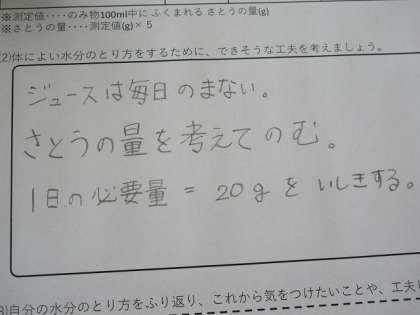 ※測定値‥‥のみ物100ml中に ふくまれる さとうの量(g)
※さとうの量‥‥測定値(g)× 5
(2)体によい水分のとり方をするために、できそうな工夫を考えましょう。
ジュースは毎日のまない。
さとうの量を考えてのむ。
1日の必要量 = 20g を いしきする。
3)自分の水分のとり方をふり返り、これから気をつけたいことや、工夫し